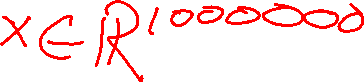 x∈ℝ¹⁰⁰⁰⁰⁰⁰